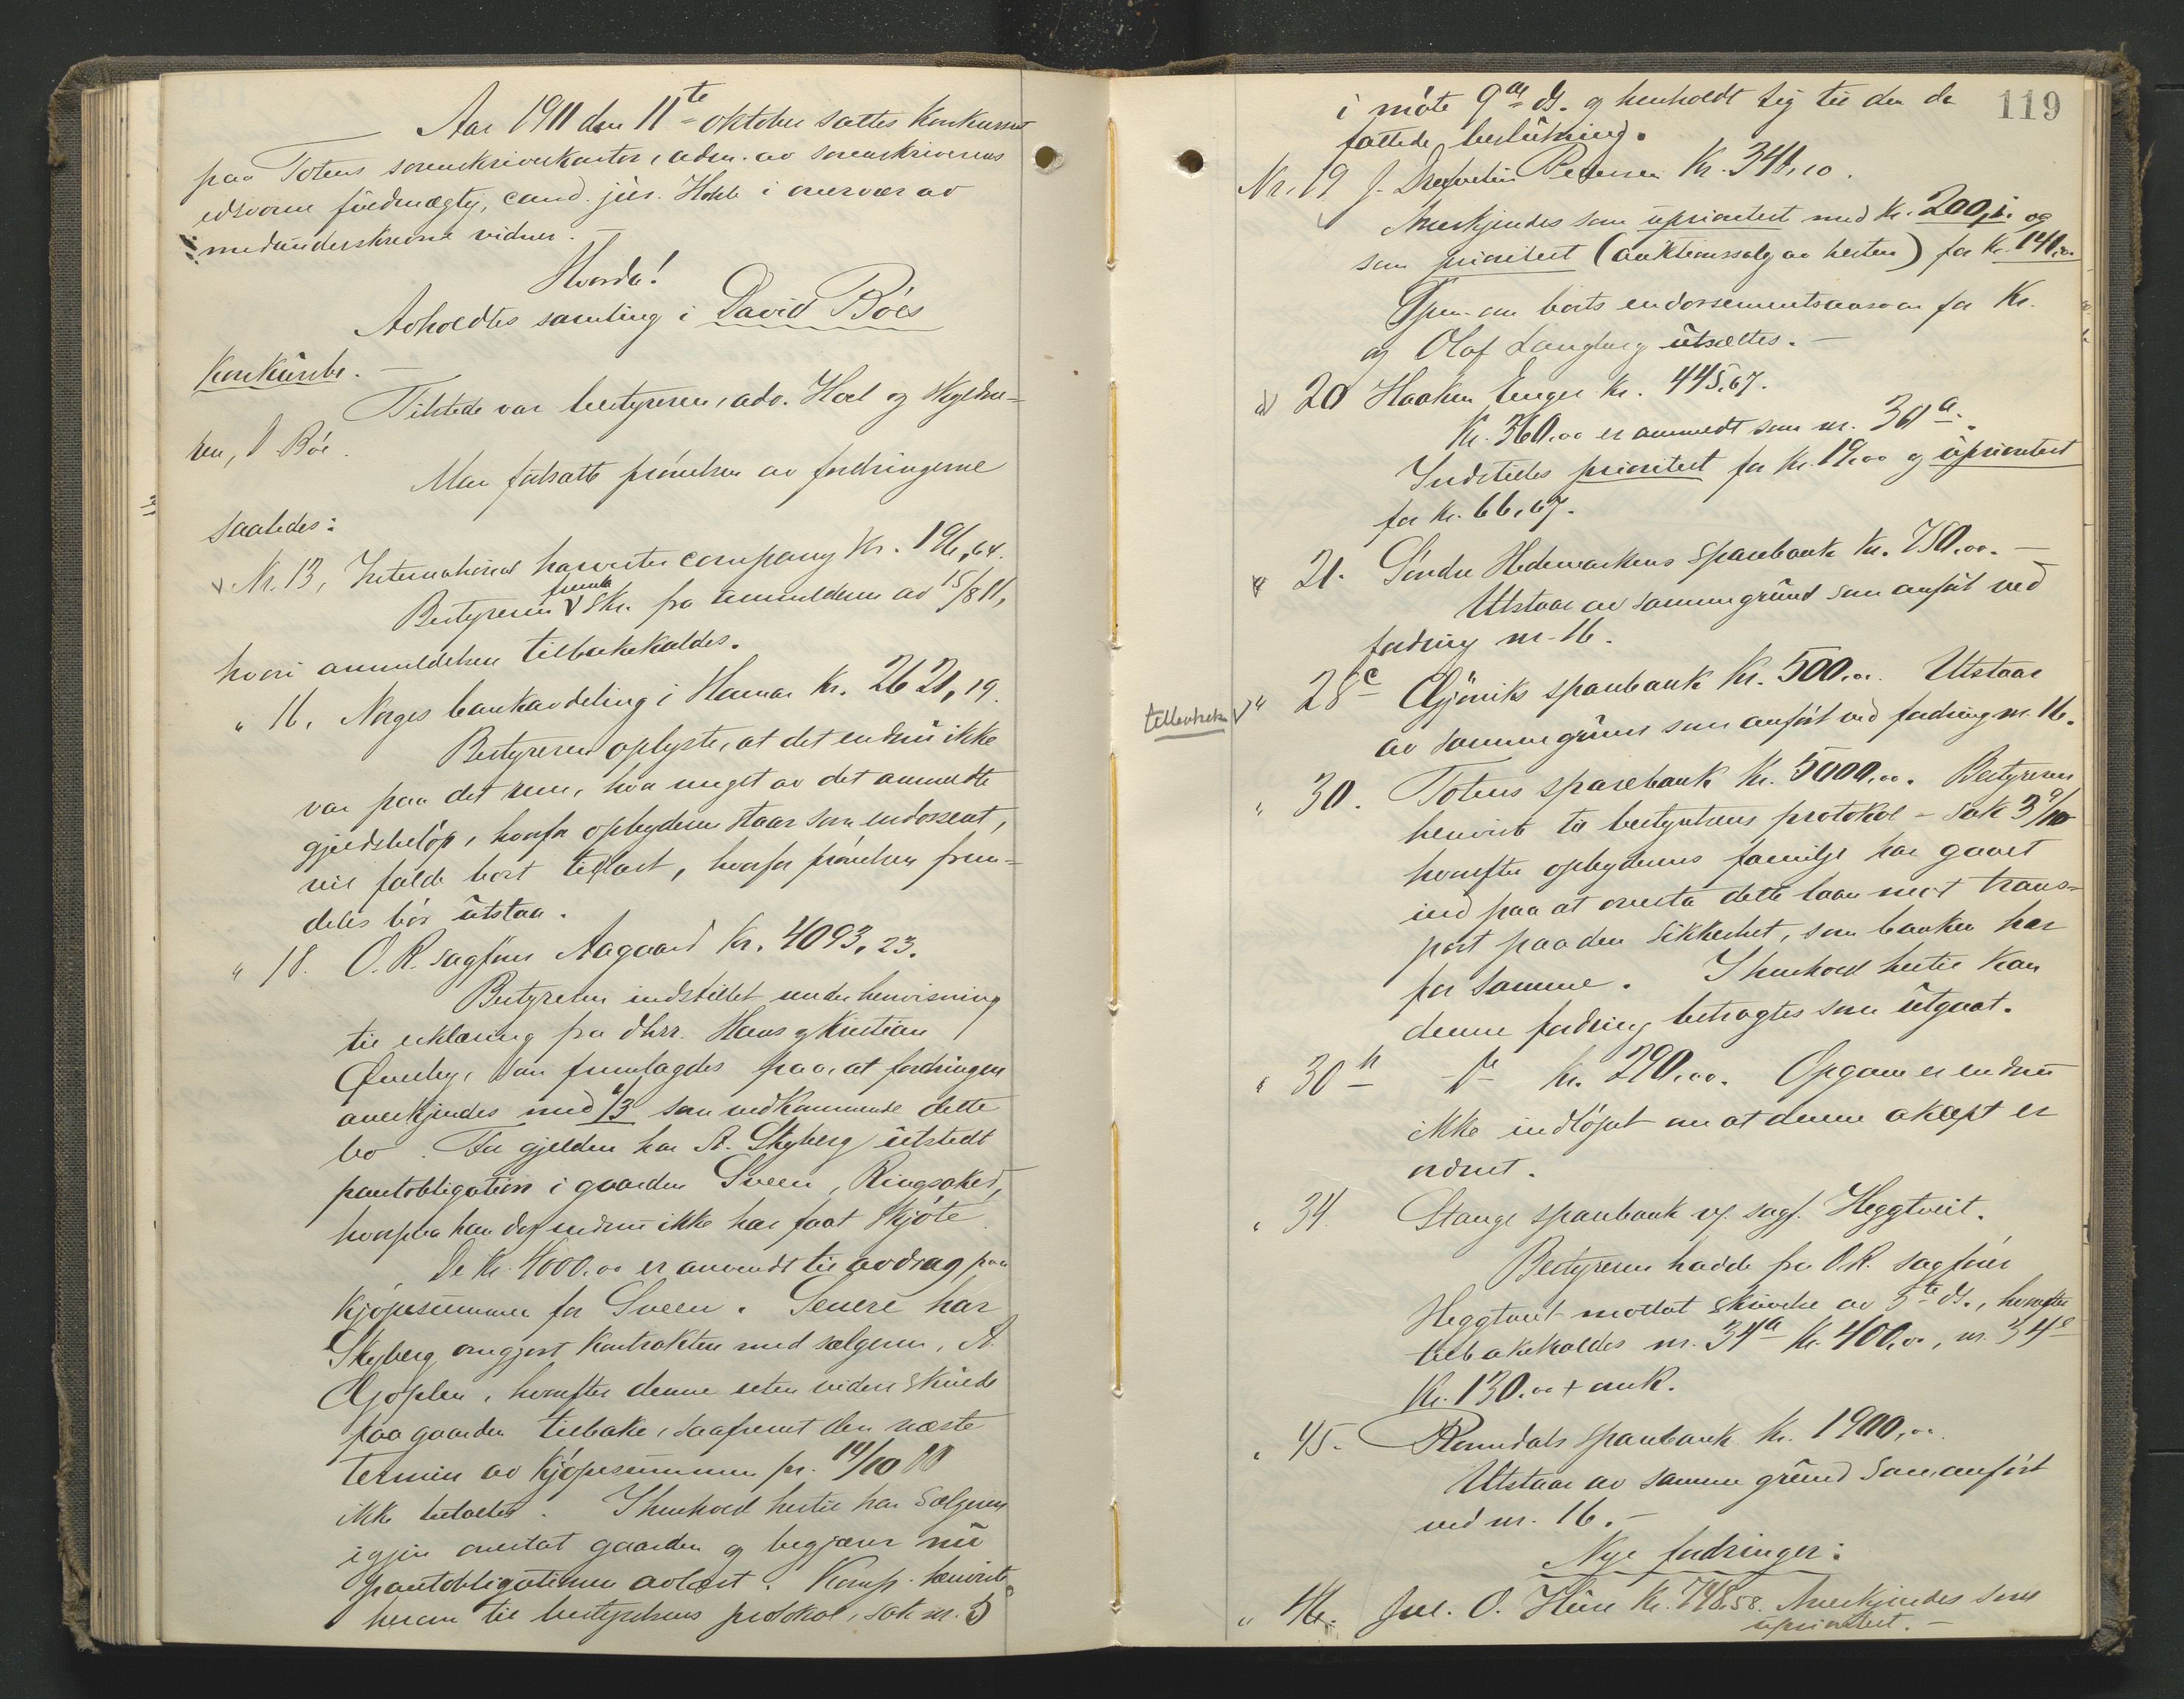 Aar 1911 den 11te oktober sattes konkursret
paa Totens sorenskriverkontor, adm. av sorenskriverens
edsvorne fuldmægtig, cand. jur. i overvær av
medunderskrevne vidner. —
Hvorda!
Avholdtes samling i David Böes
konkursbo. —
Tilstede var bestyreren, adv. Hoel og skyldne-
ren, D Böe.
Man fortsatte prövelsen av fordringerne
saaledes:
v Nr. 13, International harvester company kr. 196,64.
Bestyreren freml. skr. fra anmelderen av 15/8 11,
hvori anmeldelsen tilbakekaldes.
" 16. Norges bankavdeling i Hamar kr. 2621,19.
Bestyreren oplyste, at det endnu ikke
var paa det rene, hvor meget av det anmeldte
gjeldsbelöp, hvorfor opbyderen staar som endossent,
vil falde bort tillast, hvorfor prövelsen frem-
deles bör utstaa.
" 18. O. R. sagförer Aagaard kr. 4093,23.
Bestyreren indstillet under henvisning
til erklæring fra dhrr. Hans og Kristian
Överby, som fremlagdes paa, at fordringen
anerkjendes med 1/3 som vedkommende dette
bo. For gjelden har A. Skyberg utstedt
pantobligation i gaarden Sveen, Ringsaker,
hvorpaa han dog endnu ikke har faat skjöte.
De kr. 4000.00 er anvendt til avdrag paa
kjöpesummen for Sveen. Senere har
Skyberg omgjort kontrakten med sælgeren, A.
Gjöplen, hvorefter denne uten videre skulde
faa gaarden tilbake, saafremt den næste
termin av kjöpesummen pr. 14/10
ikke betaltes. I henhold hertil har sælgeren
igjen overtat gaarden og begjærer nu
pantobligationen avlæst. Komp. henviste
herom til bestyrelsens protokol, sak nr. 5
119
i möte 9de ds. og henholdt sig til den da
fattede beslutning.
Nr. 19 J. Pedersen Kr. 341,10.
Anerkjendes som uprioritert med kr. 200,1. og
som prioritert (auktionssalg av hesten) for kr. 141,00
Spm. om boets endorsementsansvar for Kr.
og Olaf Langberg utsættes. —
" 20 Haaken Enger kr. 445,67.
Kr. 360.00 er anmeldt som nr. 30a.
Indstilles prioritert for kr. 19.00 og uprioritert
for kr. 66,67.
" 21. Söndre Hedemarkens sparebank kr. 750.00. —
Utstaar av samme grund som anfört ved
fordring nr. 16.
tilbakek. v " 28c Gjöviks sparebank kr. 500.00. Utstaar
av samme grund som anfört ved fordring nr. 16.
" 30. Totens sparebank kr. 5000.00. Bestyreren
henviste til bestyrelsens protokol – sak 3 9/10
hvorefter opbyderens familje har gaaet
ind paa at overta dette laan mot trans-
port paa den sikkerhet, som banken har
for samme. I henhold hertil kan
denne fordring betragtes som utgaat.
" 30b — kr. 290.00. Opgave er endnu
ikke indlöpet om at denne aksept er
ordnet.
" 34. Stange sparebank v. sagf. Heggtveit.
Bestyreren hadde fra O.R. sagförer
Heggtveit mottat skrivelse av 5te ds., hvorefter
tilbakekaldes nr. 34a kr. 400,00, nr. 34e
kr. 130.00 + omk.
" 45. Romedals sparebank kr. 1900,00
Utstaar av samme grund som anfört
ved nr. 16. —
Nye fordringer:
" 46. Jul. O. kr. 748,58. Anerkjendes som
uprioritert. —